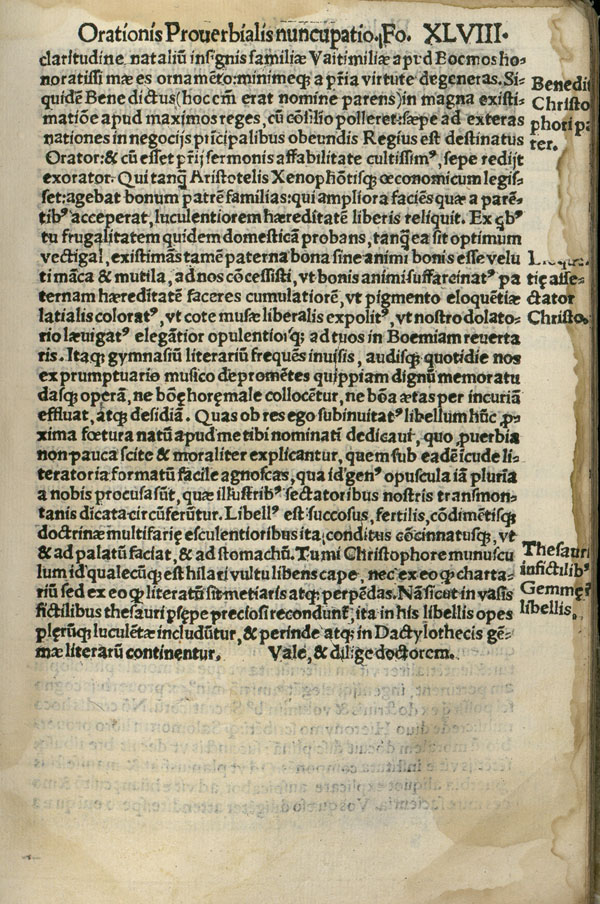 Orationis Prouerbialis nuncupatio. Fo. XLVIII.
claritudine nataliũ insignis familiæ Vaitimiliæ apud Boemos ho-
noratissimæ es ornamẽto: minimeq; a p̃ria virtute degeneras. Si-
quidẽ Benedictus (hoc em̃ erat nomine parens) in magna existi-
matiõe apud maximos reges, cũ cõsilio polleret: sæpe ad exteras
nationes in negocijs prĩcipalibus obeundis Regius est destinatus
Orator: & cũ esset p̃rij sermonis affabilitate cultissimꝰ, sepe redijt
exorator. Qui tanq̃ Aristotelis Xenophõtisq; œconomicum legis-
set: agebat bonum patrẽ familias: qui ampliora faciẽs quæ a parẽ-
tibꝰ acceperat, luculentiorem hæreditatẽ liberis reliquit. Ex q̃bꝰ
tu frugalitatem quidem domesticã probans, tanq̃ ea sit optimum
vectigal, existimãs tamẽ paterna bona sine animi bonis esse velu
ti mãca & mutila, ad nos cõcessisti, vt bonis animi suffarcinatꝰ pa
ternam hæreditatẽ faceres cumulatiorẽ, vt pigmento eloquẽtiæ
latialis coloratꝰ, vt cote musæ liberalis expolitꝰ, vt nostro dolato-
rio læuigatꝰ elegãtior opulentiorq; ad tuos in Boemiam reuerta
ris. Itaq; gymnasiũ literariũ frequẽs inuisis, audisq; quotidie nos
ex prumptuario musico depromẽtes quippiam dignũ memoratu
dasq; operã, ne bõę horę male collocẽtur, ne bõa ætas per incuriã
effluat, atq; desidiã. Quas ob res ego subinuitatꝰ libellum hũc ꝓ-
xima fœtura natũ apud me tibi nominatĩ dedicaui, quo ꝓuerbia
non pauca scite & moraliter explicantur, quem sub eadẽ icude li-
teratoria formatũ facile agnoscas, qua id genꝰ opuscula iã pluria
a nobis procusa sũt, quæ illustribꝰ sectatoribus nostris transmon-
tanis dicata circũferũtur. Libellꝰ est succosus, fertilis, cõdimẽtisq;
doctrinæ multifarię esculentioribus ita conditus cõcinnatusq;, vt
& ad palatũ faciat, & ad stomachũ. Tu mi Christophore munuscu
lum id qualecũq; est hilari vultu libens cape, nec ex eo q; charta-
riũ sed ex eo q; literatũ sit metiaris atq; perpẽdas. Nã sicut in vasis
fictilibus thesauri pſępe preciosi recondunt̃, ita in his libellis opes
plęrũq; luculẽtæ includũtur, & perinde atq; in Dactylothecis gẽ-
mæ literarũ continentur. Vale, & dilige doctorem.
Benedi
Christo
phori pa
ter.
tię affe-
ctator
Christo.
Thesauri
in fictilibꝰ
Gemmę
libellis.